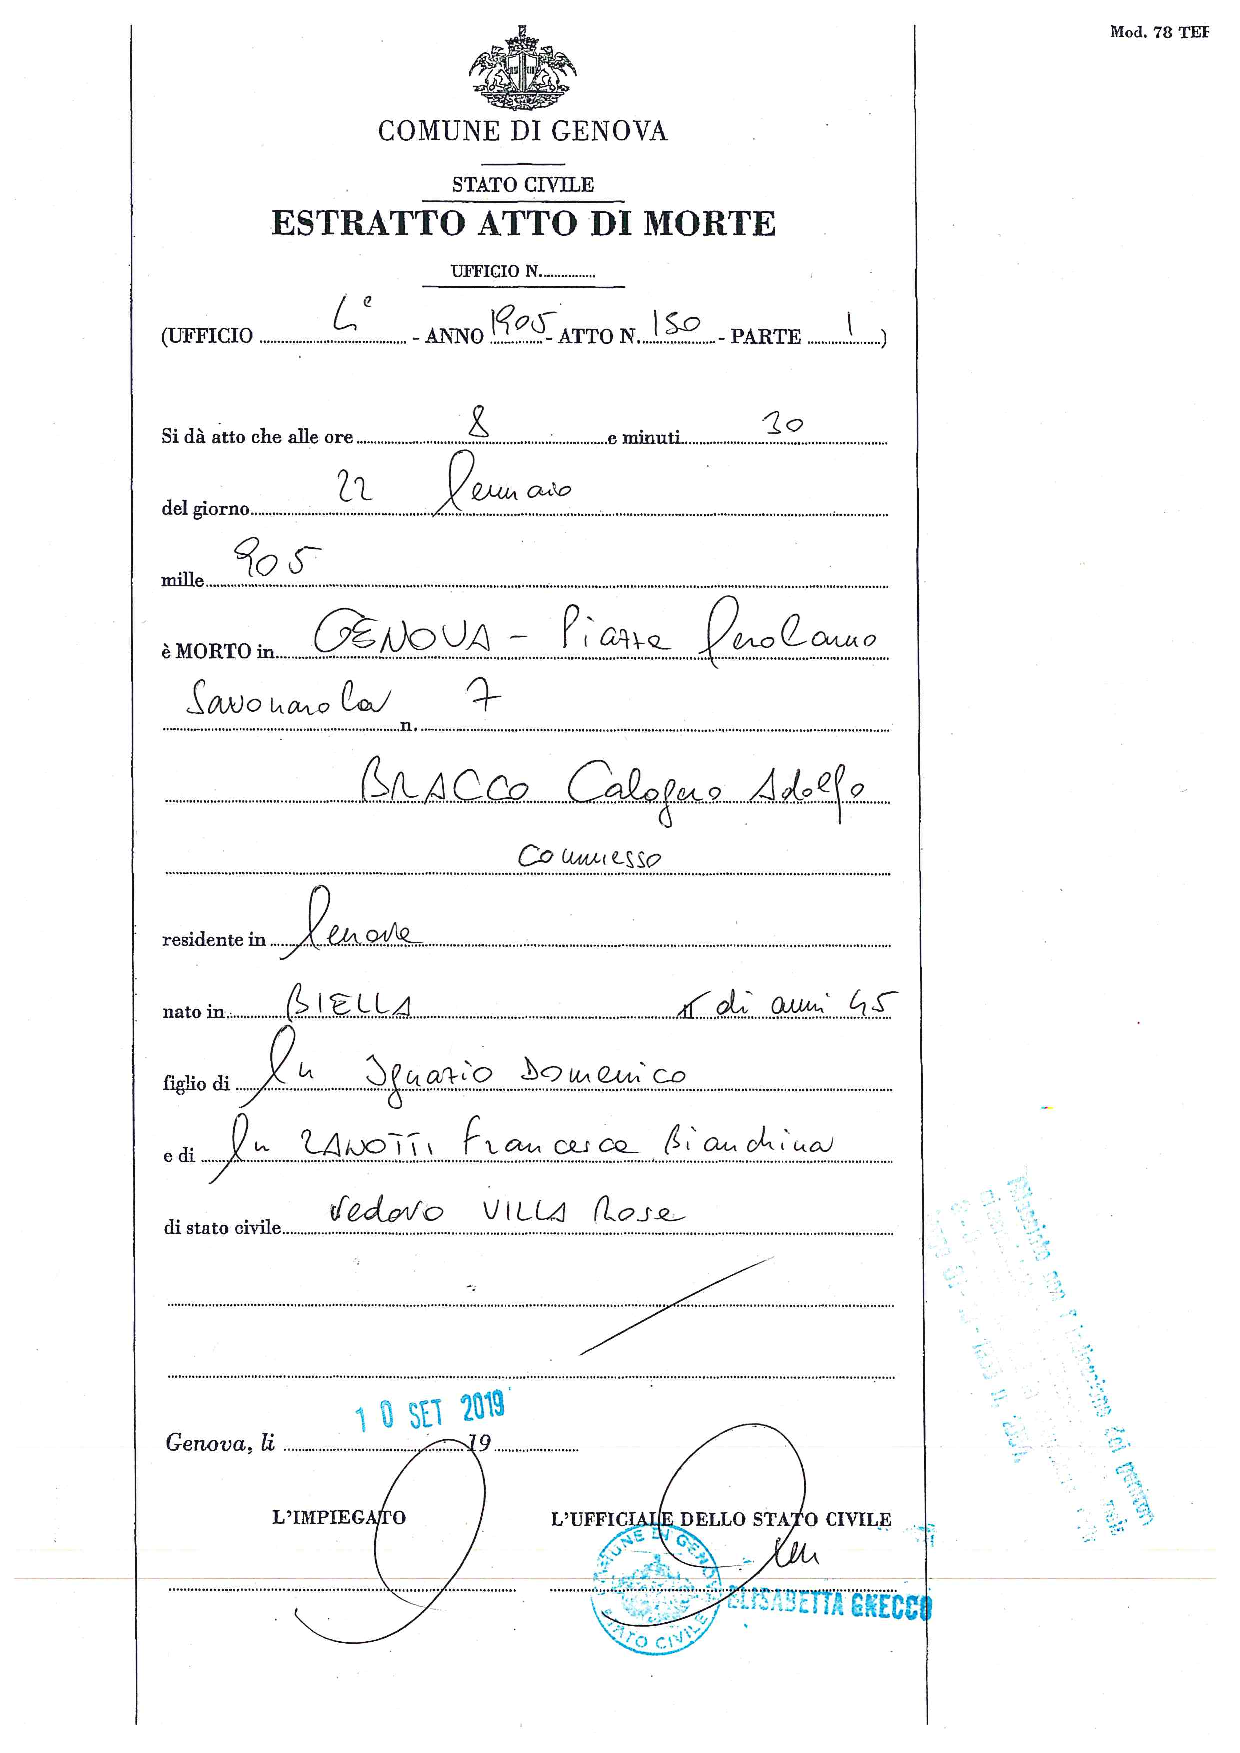 Mod. 78 TEF
COMUNE DI GENOVA
STATO CIVILE
ESTRATTO ATTO DI MORTE
UFFICIO N.
(UFFICIO 4e - ANNO 1905 - ATTO N. 150 - PARTE 1)
Si dà atto che alle ore 8 e minuti 30
del giorno 22 Gennaio
mille 905
è MORTO in GENOVA - Piazza Gerolamo
Savonarola n. 7
BRACCO Calogero Adolfo
Commesso
residente in Genova
nato in BIELLA di anni 45
figlio di fu Ignazio Domenico
e di fu ZANOTTI Francesca Bianchina
di stato civile Vedovo VILLA Rosa
10 SET 2019
Genova, li 19
L'IMPIEGATO L'UFFICIALE DELLO STATO CIVILE
COMUNE DI GENOVA
STATO CIVILE
ELISABETTA GNECCO